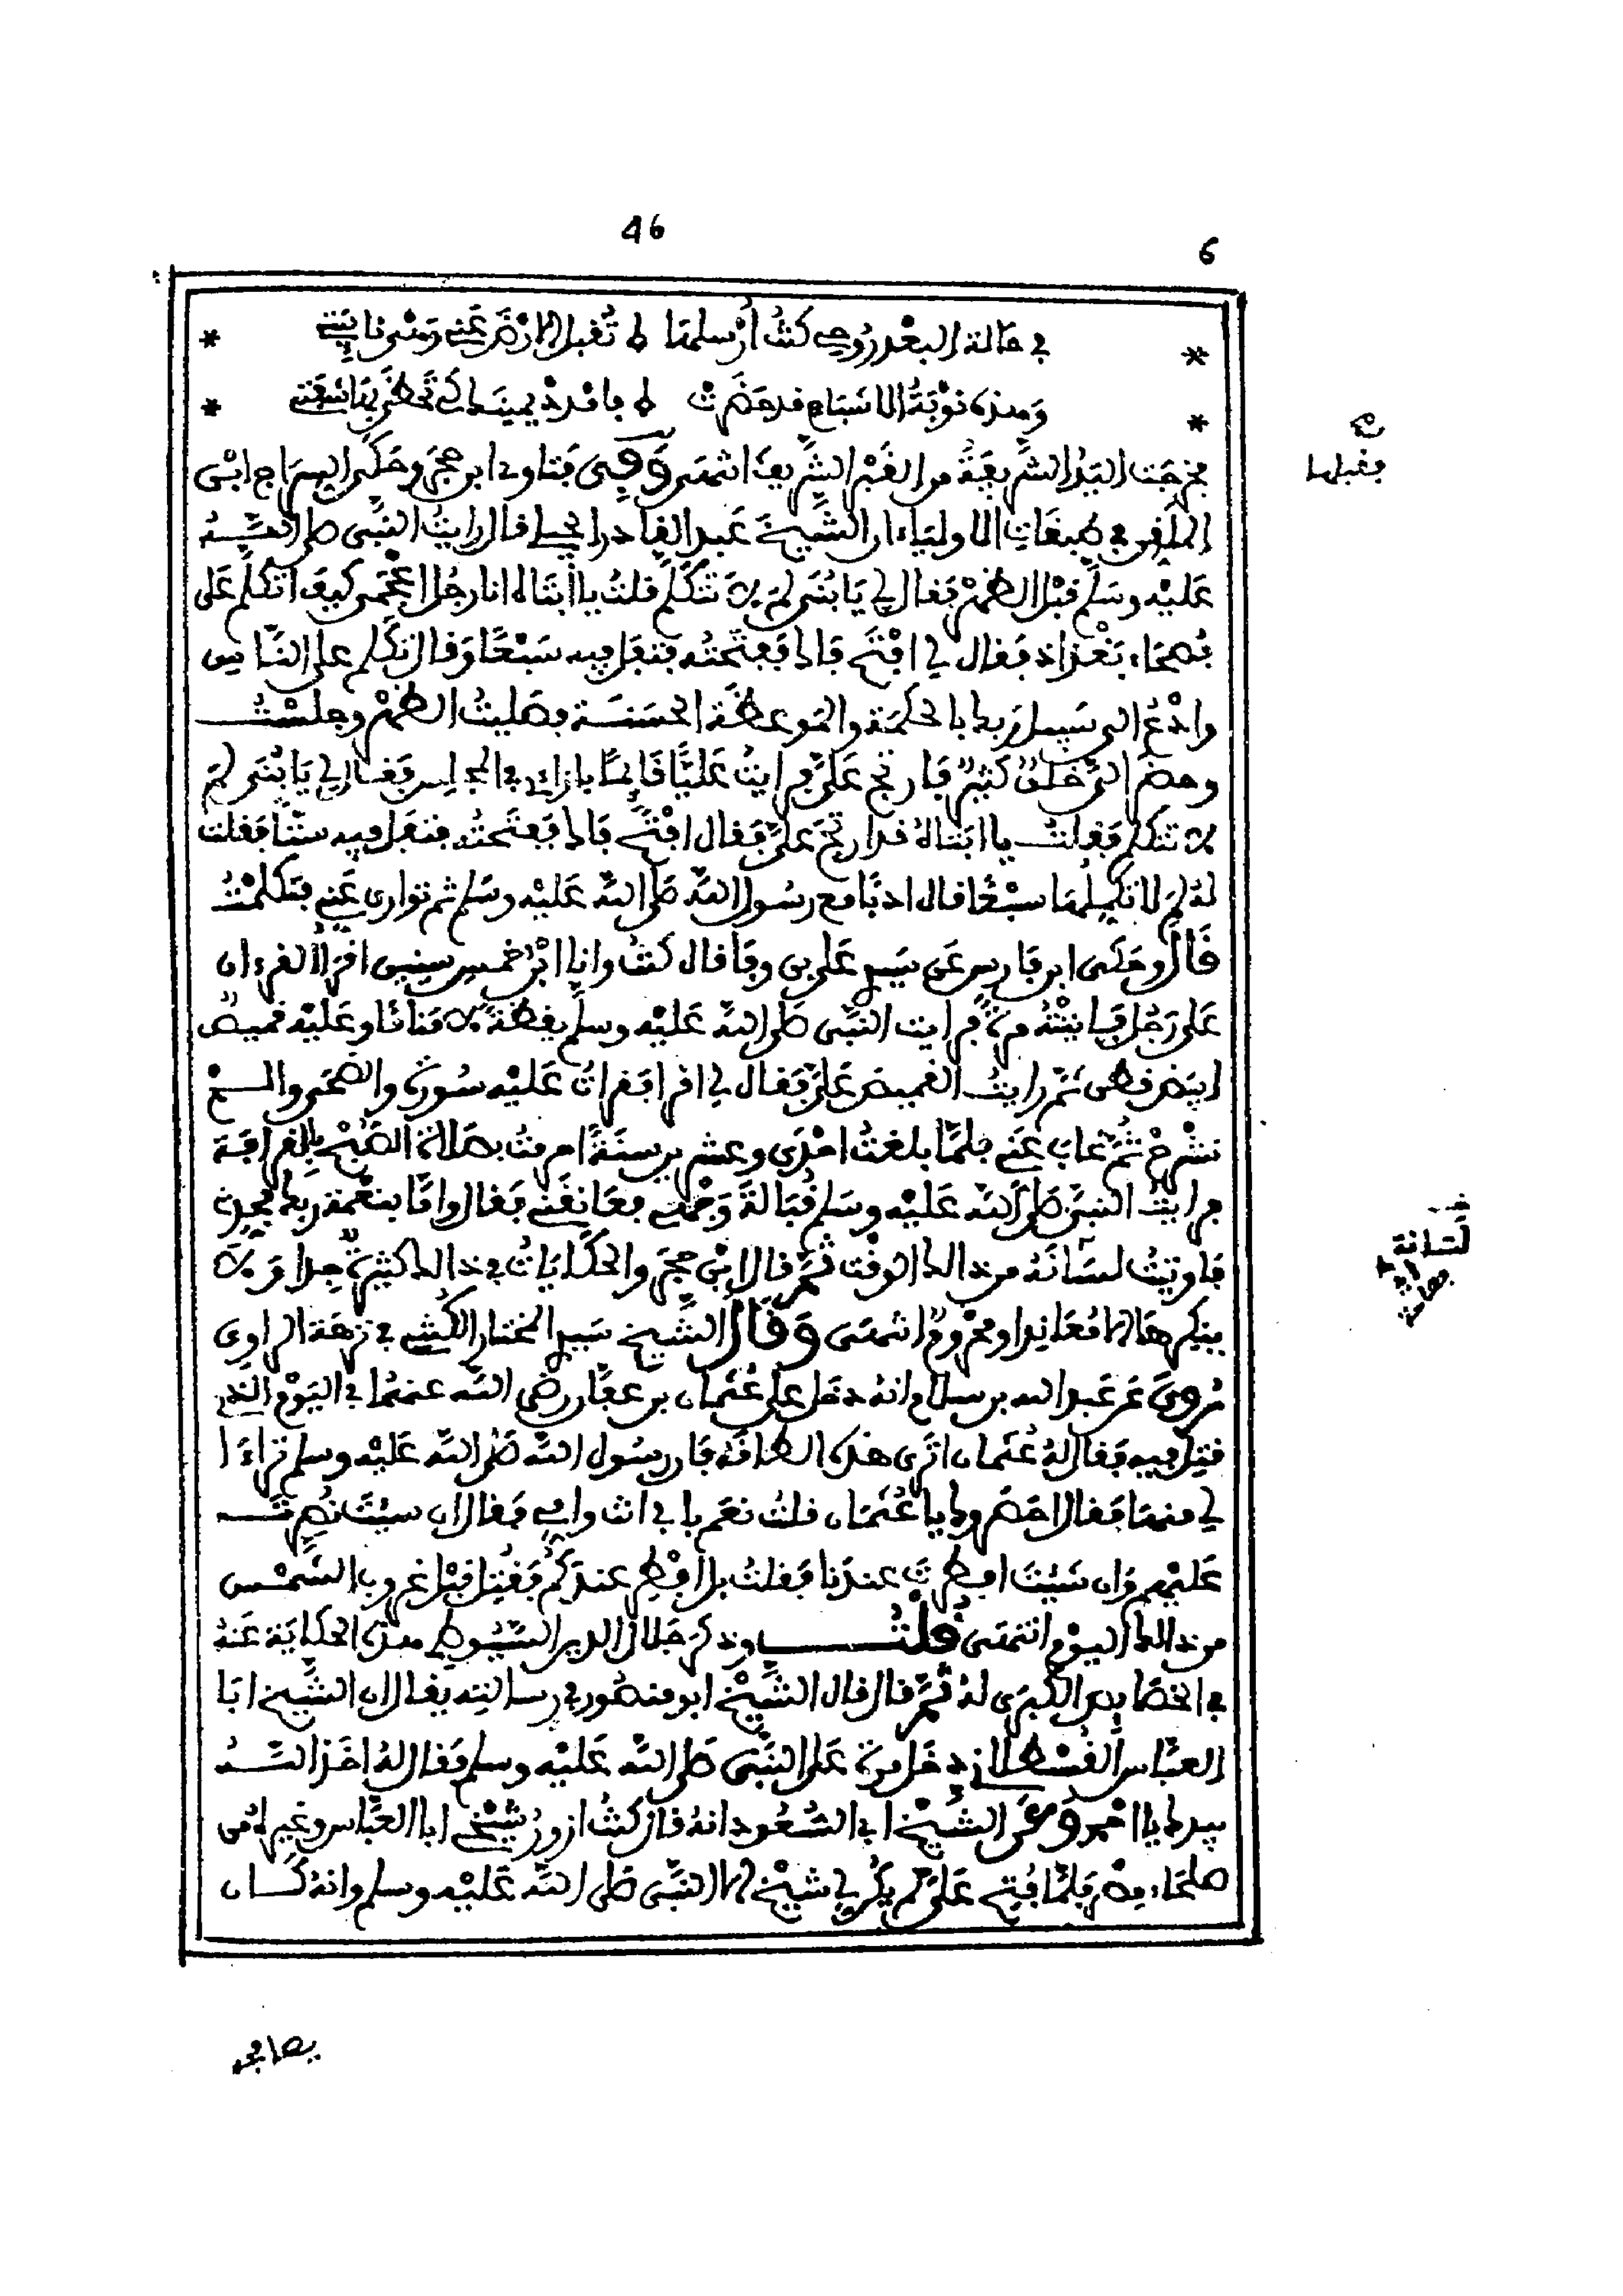 46
6
* في حالة البعد روحي كنت أرسلها ۞ تقبل الارض عني وهي نايبتي *
* وهذه نوبة الاشباح قد حضرت ۞ بامدد يمينك كي تحظى بها شفتي *
فخرجت اليد الشريفة من القبر الشريف انتهى وفي فتاوى ابن حجر وحكى السراج ابن
فقبلها
الملقن في طبقات الاولياء ان الشيخ عبد القادر الجيلي قال رايت النبي صلى الله
عليه وسلم قبل الظهر فقال لي يا بني لم لا تتكلم قلت يا أبتاه انا رجل اعجمي كيف اتكلم على
فصحاء بغداد فقال لي افتح فاك ففتحته فتفل فيه سبعا وقال تكلم على الناس
وادع الى سبيل ربك بالحكمة والموعظة الحسنة فصليت الظهر وجلست
وحضر الي خلق كثير فارتج علي فرايت عليا قائما بازاءي في المجلس فقال لي يا بني لم
لا تتكلم فقلت يا ابتاه قد ارتج علي فقال افتح فاك ففتحته فتفل فيه ستا فقلت
له لم لا تكملها سبعا قال ادبا مع رسول الله صلى الله عليه وسلم ثم توارى عني فتكلمت
قال وحكى ابن فارس عن سيدي علي بن وفا قال كنت وانا ابن خمس سنين اقرأ القرءان
على رجل فاتيته مرة فرايت النبي صلى الله عليه وسلم يقظة لا مناما وعليه قميص
ابيض قطن ثم رايت القميص علي فقال لي اقرا فقرات عليه سورة والضحى والم
نشرح ثم غاب عني فلما بلغت احدى وعشرين سنة احرمت بصلاة الصبح بالقرافة
فرايت النبي صلى الله عليه وسلم قبالة وجهي فعانقني فقال واما بنعمة ربك فحدث
فاوتيت لسانه من ذالك الوقت ثم قال ابن حجر والحكايات في ذالك كثيرة جدا ولا
لسانة
ينكرها الا معاند او محروم انتهى وقال الشيخ سيدي المختار الكنتي في نزهة الراوي
روي عن عبد الله بن سلام انه دخل على عثمان بن عفان رضي الله عنهما في اليوم الذي
قتل فيه فقال له عثمان اترى هذه الطاقة فان رسول الله صلى الله عليه وسلم تراءا
لي منها فقال احضروك يا عثمان قلت نعم بابي انت وامي فقال ان شئت نصرت
عليهم وان شئت افطرت عندنا فقلت بل افطر عندكم فقتل قبل غروب الشمس
من ذالك اليوم انتهى قلت وذكر جلال الدين السيوطي هذه الحكاية عنه
في الخصايص الكبرى له ثم قال قال الشيخ ابو منصور في رسالته يقال ان الشيخ ابا
العباس القسطلاني دخل مرة على النبي صلى الله عليه وسلم فقال له اخذ الله
بيدك يا احمد وعن الشيخ ابي السعود انه قال كنت ازور شيخي ابا العباس وغيره من
صلحاء مصر فلما فتح علي لم يكن لي شيخ الا النبي صلى الله عليه وسلم وانه كان
يصافحه